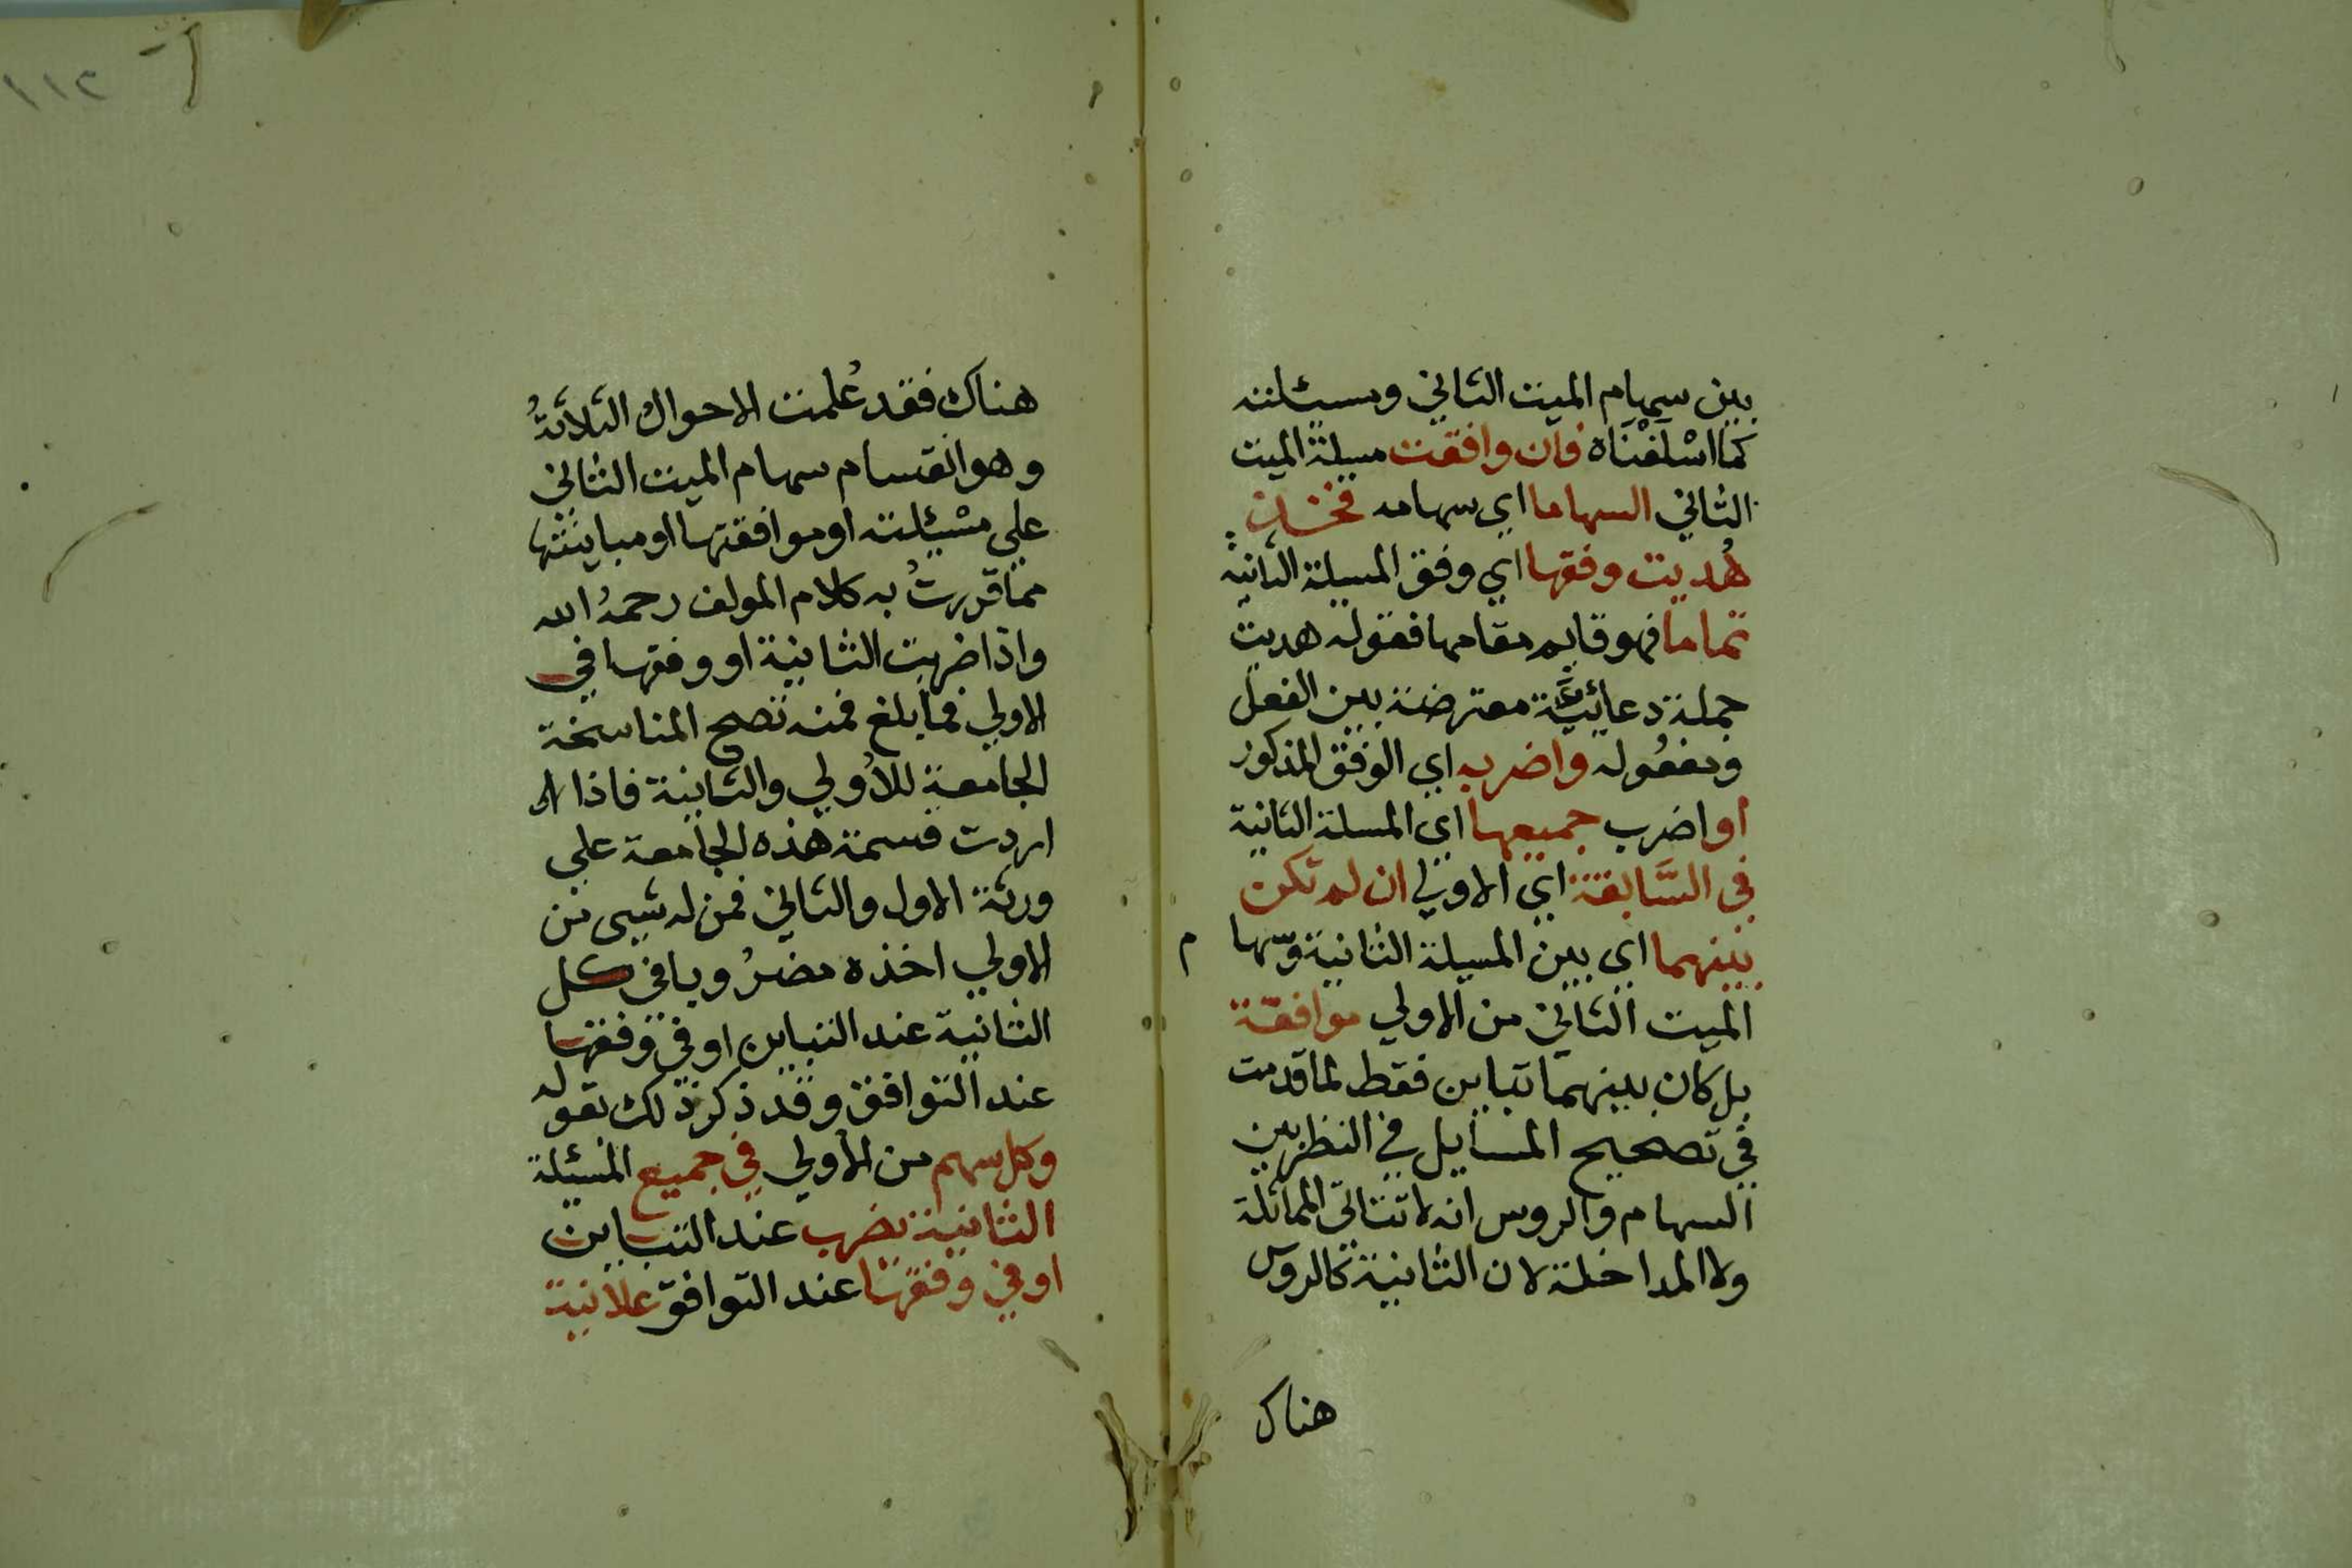 بين سهام الميت الثاني ومسئلته
كما اسْلَفْنَاه فان وافقت مسيلة الميت
الثاني السهاما اي سهامه فخذن
هُديت وفقها اي وفق المسيلة الثانية
تماما فهو قايم مقامها فقوله هديت
جملة دعائيَّة معترضة بين الفعل
ومفعُوله واضربه اي الوفق المذكور
او اضرب جميعها اي المسلة الثانية
في السَّابقة اي الاولي ان لم تكن
بينهما اي بين المسيلة الثانية وسهام
الميت الثاني من الاولي موافقة
بل كان بينهما تباين فقط لما قدمت
في تصحيح المسايل في النظر بين
السهام والروس انه لا تتاتي المماثلة
ولا المداخلة لان الثانية كالروس
هناك
١١٢
هناك فقد عُلمت الاحوال الثلاثةُ
وهو انقسام سهام الميت الثاني
علي مسْئيلته او موافقتها او مباينتها
مما قررتُ به كلام المولف رحمهُ الله
واذا ضربت الثانية او وفقها في
الاولي فما بلغ فمنه تصح المناسخة
الجامعة للأولي والثانية فاذا
اردت قسمة هذه الجامعة علي
ورثة الاول والثاني فمن له شيى من
الاولي اخذه مضرُوبا في كل
الثانية عند التباين او في وفقها
عند التوافق وقد ذكر ذلك بقوله
وكل سهم من الأولي في جميع المسئيلة
الثانية يضرب عند التباين
او في وفقها عند التوافق علانية